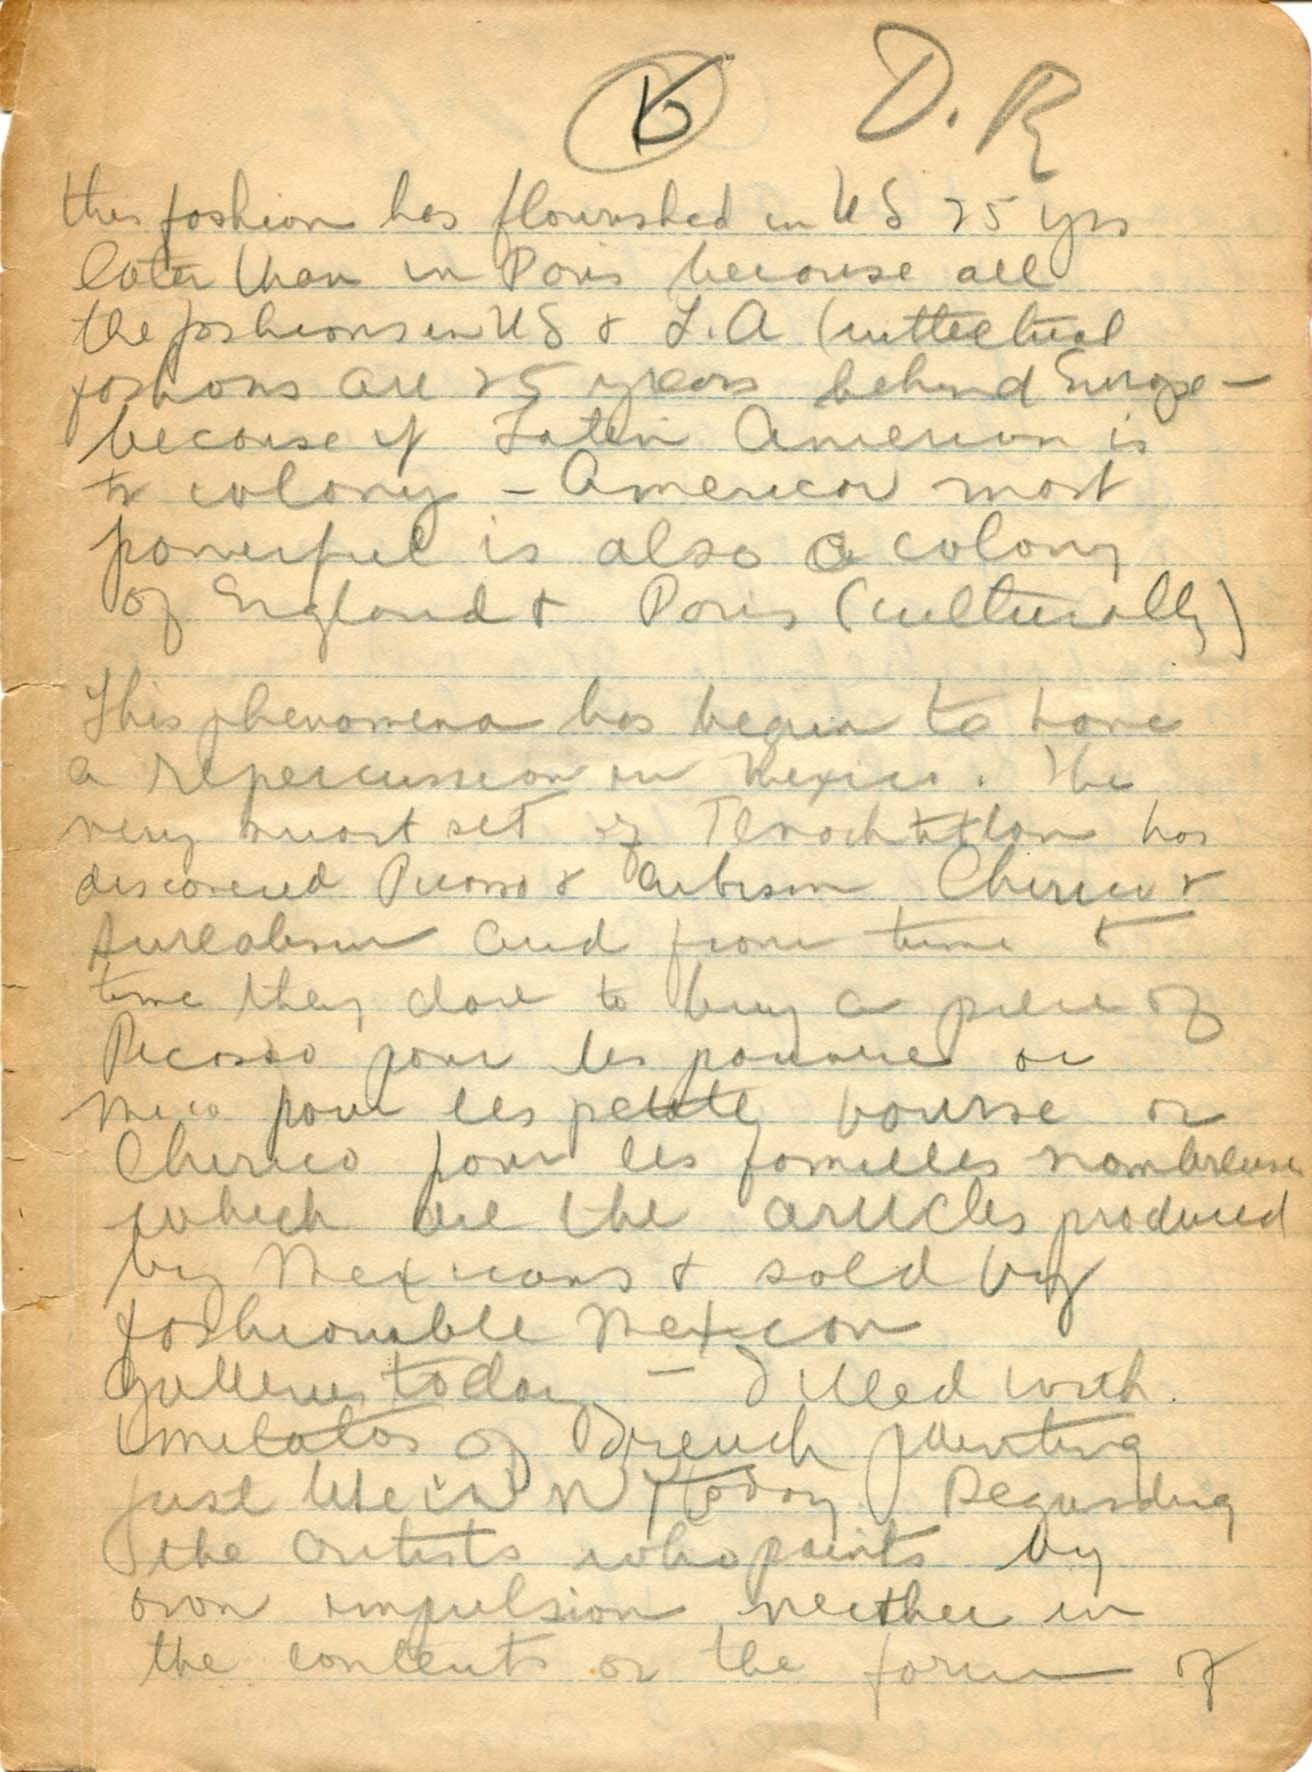 6 D.R
this fashion has flourished in US 25 yrs
later than in Paris because all
the fashions in US & L.A (intellectual
fashions are 25 years behind Europe –
because if Latin American is
colony – American most
powerful is also a colony
of England & Paris (culturally)
This phenomena has begun to have
a repercussion in Mexico. The
very smart set of Tenochtitlan has
discovered Picasso & Cubism Chirico &
Surealism and from time t
time they dare to buy a piece of
Picasso pour les pauvre or
Miro pour les petite bourse or
Chirico pour les familles nombreuses
which are the articles produced
by Mexicans & sold by
fashionable Mexican
galleries today – Filled with
of French painting
just like in N Y today Regarding
the artists who paints by
own impulsion neither in
the contents or the form of